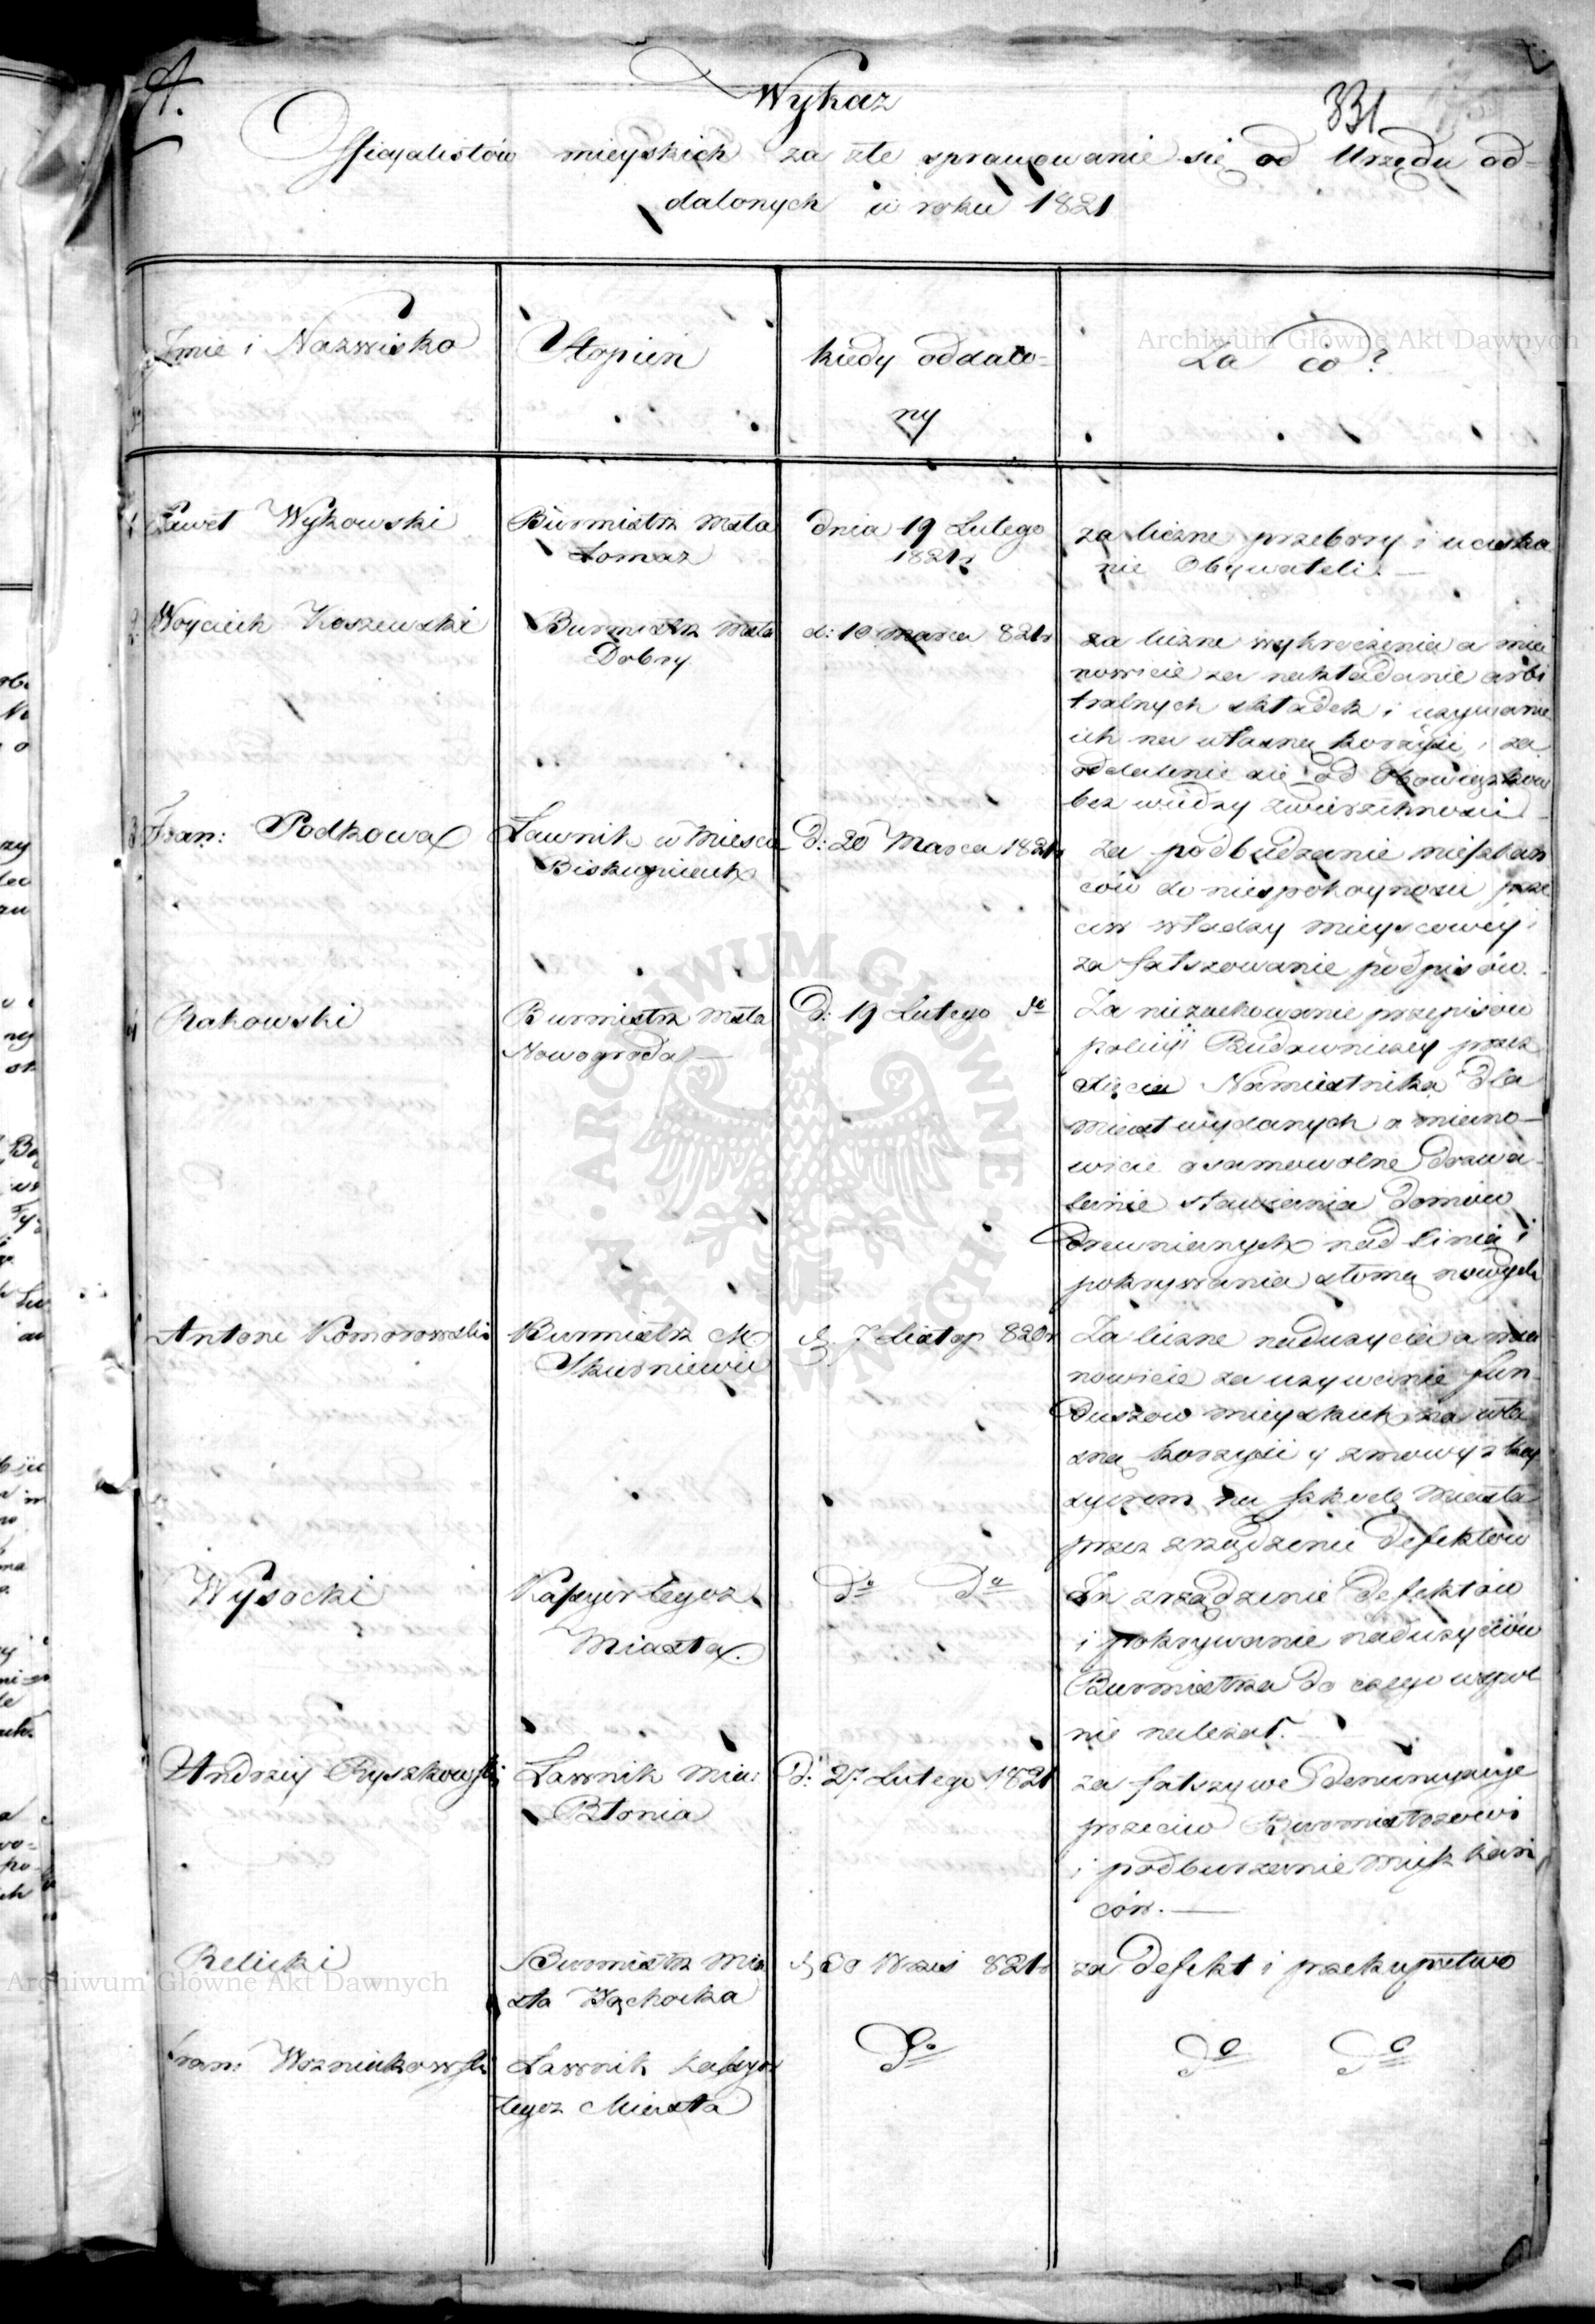 A.
Wykaz
331
Officyalistów mieyskich za złe sprawowanie się od Urzędu od-
dalonych w roku 1821
Imie i Nazwisko
Stopień
kiedy oddalo-
ny
Za co?
1 Paweł Wykowski
Burmistrz Msta
Łomaz
dnia 19 Lutego
1821r
za liczne przebory i uciska
nie Obywateli. —
2 Woyciech Koszewski
Burmistrz Msta
Dobry
d: 10 marca 821r
za liczne wykroczenia a mia
nowicie za nakładanie arbi
tralnych składek i używanie
ich na własną korzyść i za
oddalenie się od Obowiązków
bez wiedzy zwierzchności
3 Fran: Podkowa
Ławnik w Miescie
Biskupicach
D: 20 Marca 1821r
Za podbudzanie mieszkań
ców do niespokoyności prze
ciw władzy mieyscowey i
za fałszowanie podpisów.
4 Rakowski
Burmistrz Msta
Nowogroda —
D: 19 Lutego do
Za niezachowanie przepisów
policyi Budowniczey przez
Xięcia Namiestnika dla
Miast wydanych a miano-
wicie o samowolne dozwa-
lanie stawiania Domów
Drewnianych nad linią i
pokrywania słomą nowych
Antoni Komorowski
Burmistrz M
Skierniewic
d. 7 Listop 820r
Za liczne nadużycia a mia
nowicie za używanie fun-
duszow mieyskich na wła
sną korzyść y zmowy z kas
syerem na szkodę Miasta
przez zrządzenie Defektów
Wysocki
Kassyer tegoż
Miasta.
do do
Za zrządzenie Defektów
i pokrywanie nadużyciów
Burmistrza do czego wspól
nie należał. —
Andrzey Ryszkowski
Ławnik Mia:
Błonia
d: 27 Lutego 1821
za fałszywe denuncyacye
przeciw Burmistrzowi
i podburzanie mieszkań
ców. —
Relicki
Burmistrz Mia
sta Wąchocka
d. 30 Wrześ 821r
za Defekt i przekupstwo
Fran: Wozniakowski
Ławnik Kassyer
tegoż Miasta
do
do do
Archiwum Główne Akt Dawnych
Archiwum Główne Akt Dawnych
ARCHIWUM GŁÓWNE AKT DAWNYCH